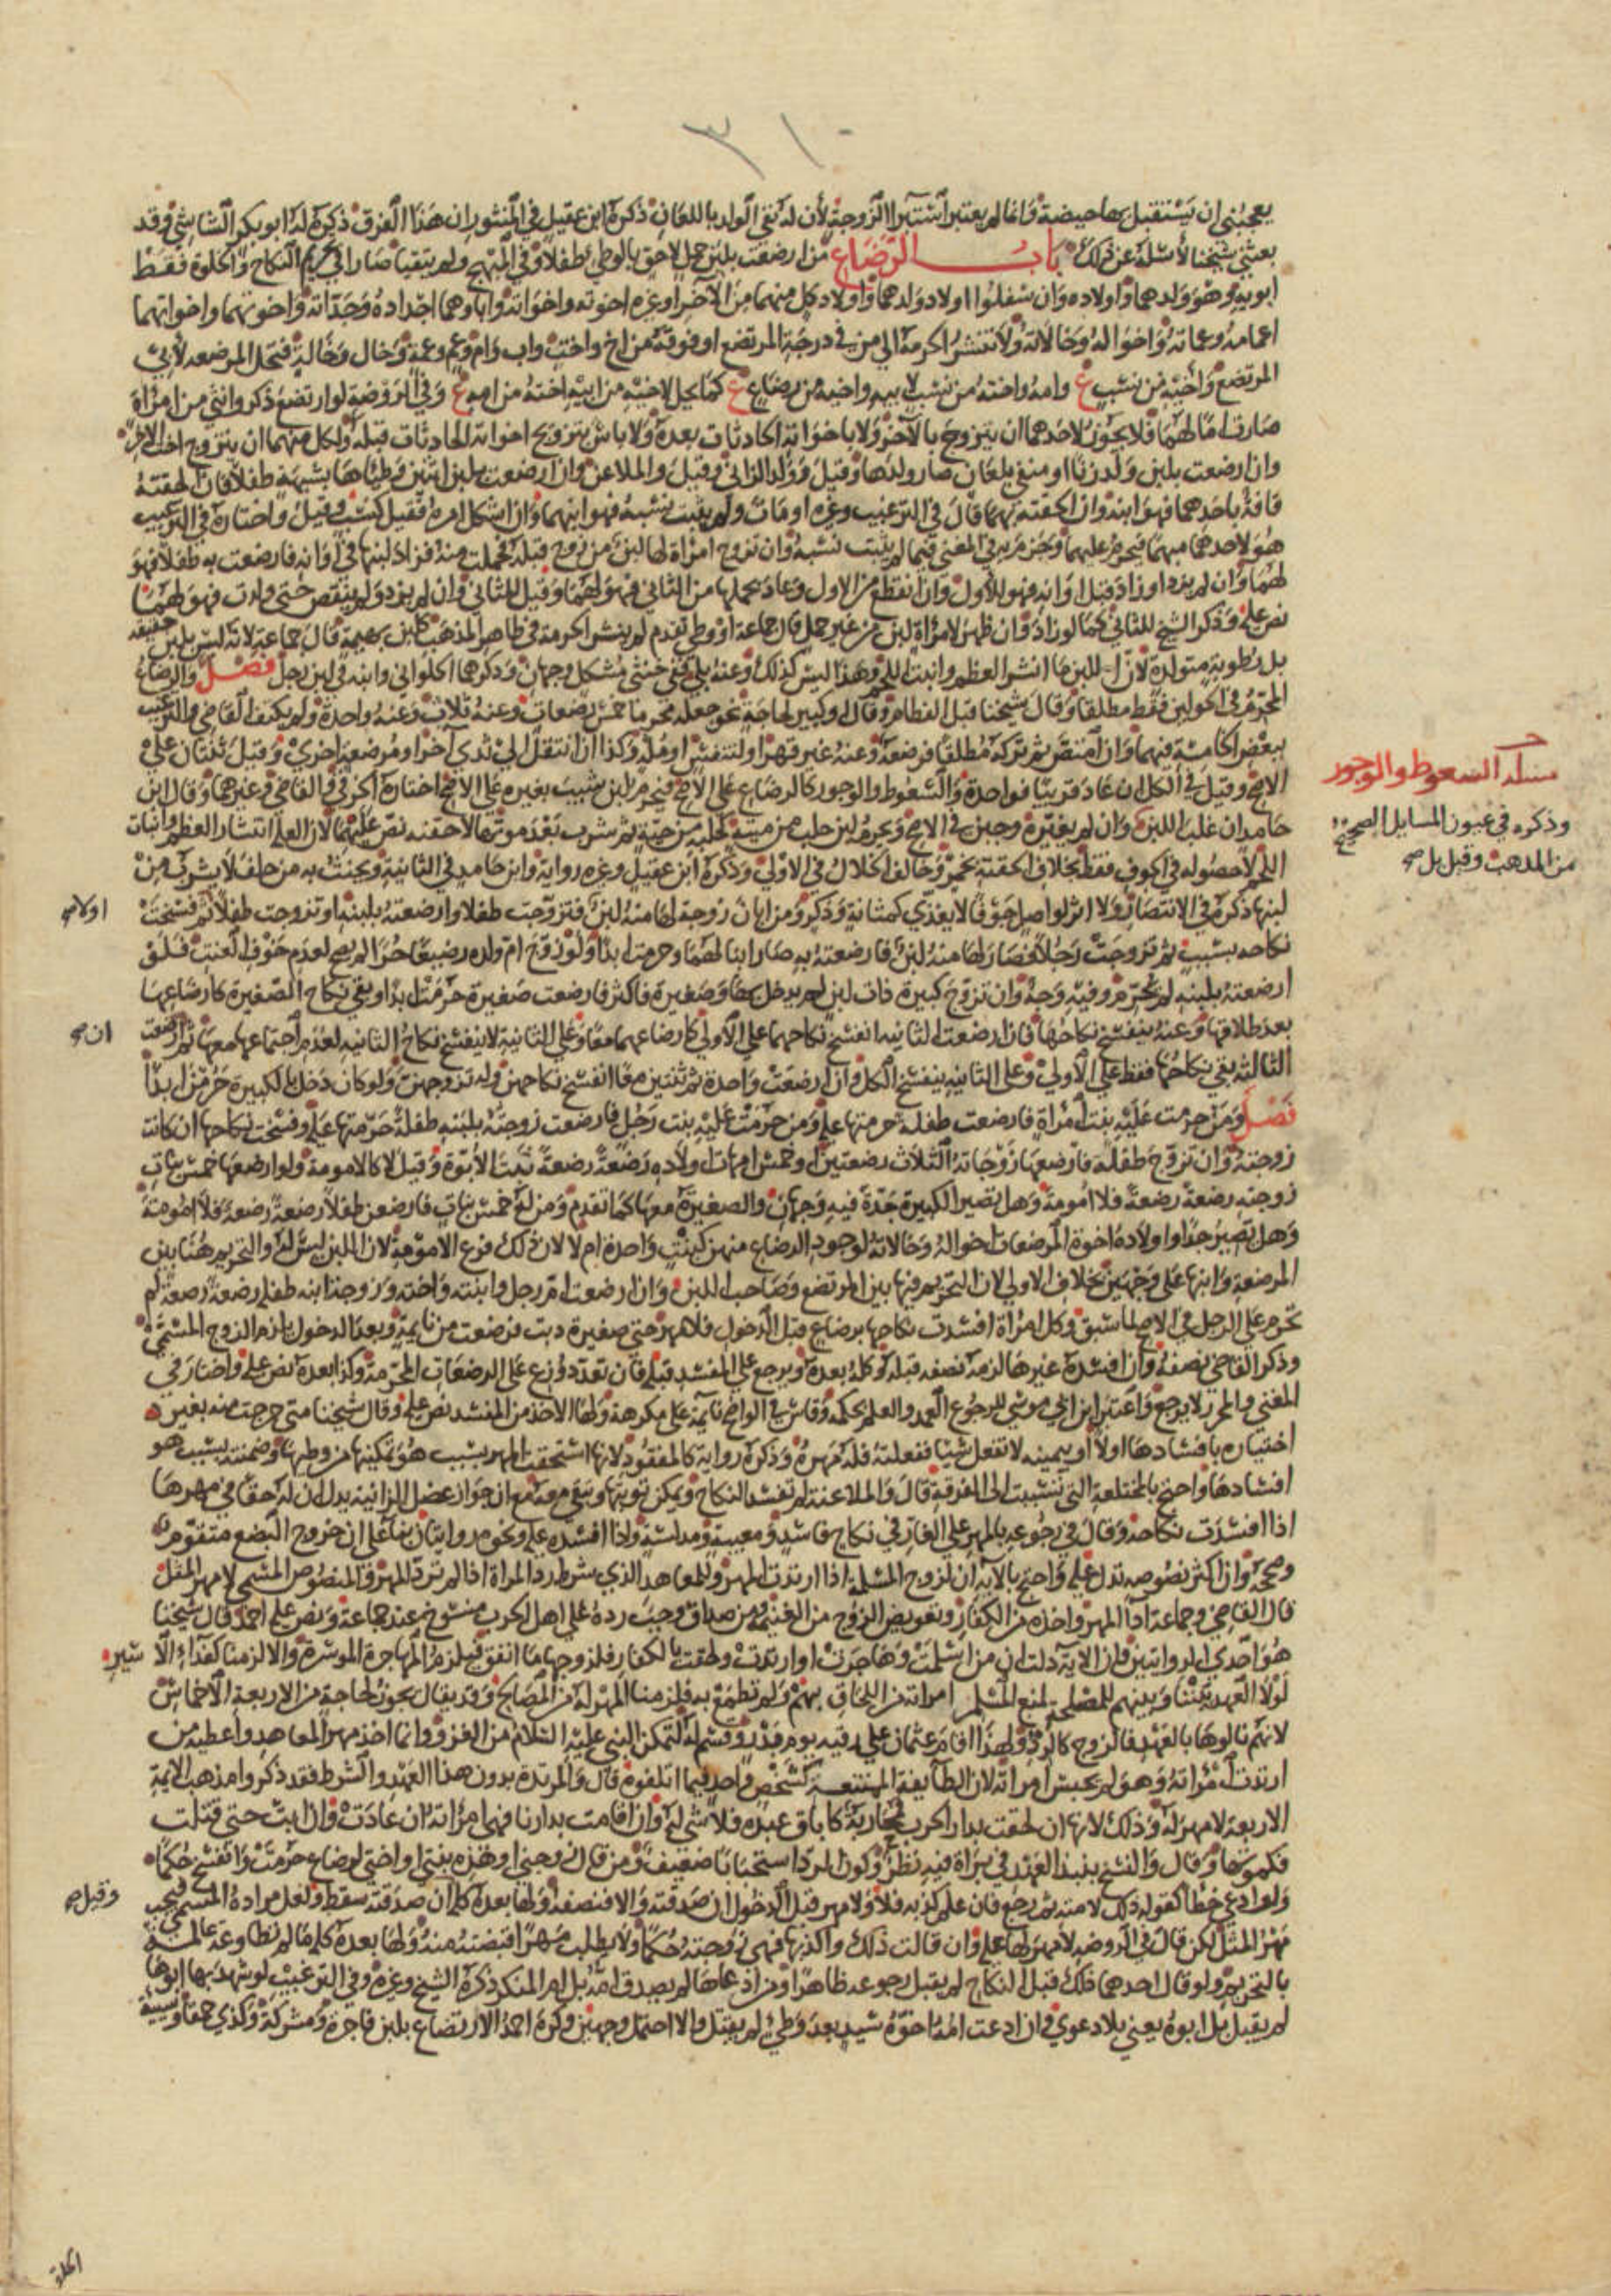 ٣١٠
يعجبني ان يستقبل بها حيضة وانما لم يعتبر استبرا الزوجة لأن له نفي الولد باللعان ذكره ابن عقيل في المنثور ان هذا الفرق ذكره له ابو بكر الشاشي وقد
بعثني شيخنا لأسئله عن ذلك باب الرضاع من ارضعت بلبن حمل لاحق بالوطي طفلا وفي المبهج ولم يتقيا صارا في تحريم النكاح والخلوة فقط
ابويه وهو ولدهما واولاده وان سفلوا اولاد ولدهما واولاد كل منهما من الآخر او غيره اخوته واخواته واباوهما اجداده وجداته واخوتهما واخواتهما
اعمامه وعماته واخواله وخالاته ولا تنتشر الحرمة الى من في درجة المرتضع او فوقه من اخ واخت واب وام وعم وعمة وخال وخالة فتحل المرضعه لأبي
المرتضع واخيه من نسب ع وامه واخته من نسب لابيه واخيه من رضاع ع كما يحل لاخيه من ابيه اخته من امه ع وفي الروضة لو ارتضع ذكر وانثى من امراة
صارت اما لهما فلا يجوز لاحدهما ان يتزوج بالآخر ولا باخواته الحادثات بعده ولا باس بتزويج اخواته الحادثات قبله ولكل منهما ان يتزوج اخت الاخر
وان ارضعت بلبن ولد زنا او منفي بلعان صار ولدها وقيل وولد الزاني وقيل والملاعن وان ارضعت بلبن اثنين وطئاها بشبهة طفلا فان الحقته
قافة باحدهما فهو ابنه وان الحقته بهما قال في الترغيب وغيره او مات ولم يثبت نسبه فهو ابنهما وان اشكل امره فقيل كنسب وقيل واختاره في الترغيب
هو لاحدهما مبهما فيحرم عليهما وجزم به في المغني فيما لم يثبت نسبه وان تزوج امراة لها لبن من زوج قبله فحملت منه فزاد لبنها في اوانه فارضعت به طفلا فهو
لهما وان لم يزد او زاد قبل اوانه فهو للأول وان انقطع من الاول وعاد بحملها من الثاني فهو لهما وقيل للثاني وان لم يزد ولم ينقص حتى ولدت فهو لهما
نص عليه وذكر الشيخ للثاني كما لو زاد وان ظهر لامراة لبن من غير حمل قال جماعة او وطي تقدم لم ينشر الحرمة في ظاهر المذهب كلبن بهيمة قال جماعة لانه ليس بلبن حقيقة
بل رطوبة متولدة لأن اللبن ما انشر العظم وانبت اللحم وهذا ليس كذلك وعنه بلى ففي خنثى مشكل وجهان وذكرهما الحلواني وابنه في لبن رجل فصل والرضاع
المحرم في الحولين فقط مطلقا وقال شيخنا قبل الفطام وقال او كبير لحاجة نحو جعله محرما خمس رضعات وعنه ثلاث وعنه واحدة ولم يكتف القاضي والترغيب
ببعض الخامسة فيهما وان امتنص ثم تركه مطلقا فرضعة وعنه غير قهرا او لتنفس او ملة وكذا ان انتقل الى ثدي آخر او مرضعة اخرى وقيل ثنتان على
الاصح وقيل في الكل ان عاد قريبا فواحدة والسعوط والوجور كالرضاع على الاصح فيحرم لبن شيب بغيره على الاصح اختاره الخرقي والقاضي وغيرهما وقال ابن
حامد ان غلب اللبن وان لم يغيره وجبن في الاصح ويحرم لبن حلب من ميتة كحلبه من حية ثم شرب بعد موتها لا حقنه نص عليهما لأن العلة انتشار العظم وانبات
اللحم لا حصوله في الجوف فقط بخلاف الحقنة بخمر وخالف الخلال في الاولى وذكره ابن عقيل وغيره رواية وابن حامد في الثانية ويحنث به من حلف لا يشرب من
لبنها ذكره في الانتصار ولا اثر لواصل جوفا لا يغذي كمثانة وذكر ومن ابان زوجة لها منه لبن فتزوجت طفلا وارضعته بلبنه او تزوجت طفلا ثم فسخت
نكاحه بسبب ثم تزوجت رجلا فصار لها منه لبن فارضعته به صار ابنا لهما وحرمت ابدا ولو زوج ام ولده رضيعا حرا لم يصح لعدم خوف العنت فلو
ارضعته بلبنه لم تحرم وفيه وجه وان تزوج كبيرة ذات لبن لم يدخل بها وصغيرة فاكثر فارضعت صغيرة حرمت ابدا وبقي نكاح الصغيرة كارضاعها
بعد طلاقها وعنه ينفسخ نكاحها فان ارضعت الثانيه انفسخ نكاحهما على الاولى كارضاعهما معا وعلى الثانية لا ينفسخ نكاح الثانيه لعدم اجتماعها معها ثم ارضعت
الثالثه بقي نكاحها فقط على الاولى وعلى الثانيه ينفسخ الكل وان ارضعت واحدة ثم ثنتين معا انفسخ نكاحهن وله تزوجهن ولو كان دخل بالكبيرة حرمن ابدا
فصل ومن حرمت عليه بنت امراة فارضعت طفلة حرمتها عليه ومن حرمت عليه بنت رجل فارضعت زوجته بلبنه طفلة حرمتها عليه وفسخت نكاحها ان كانت
زوجته وان تزوج طفلة فارضعها زوجاته الثلاث رضعتين وخمس امهات اولاده رضعة رضعة ثبت الابوة وقيل لا كالامومة ولو ارضعها خمس بنات
زوجته رضعة رضعة فلا امومة وهل تصير الكبيرة جدة فيه وجهان والصغيرة معها كما تقدم ومن له خمس بنات فارضعن طفلا رضعة رضعة فلا امومة
وهل تصير جدا واولاده اخوة المرضعات اخواله وخالاته لوجود الرضاع منهن كبنت واحدة ام لا لان ذلك فرع الامومة لان اللبن ليس له والتحريم هنا بين
المرضعة وابنها على وجهين بخلاف الاولى لان التحريم فيها بين المرتضع وصاحب اللبن وان ارضعت ام رجل وابنته واخته وزوجة ابنه طفلة رضعة رضعة لم
تحرم على الرجل في الاصح لما سبق وكل امراة افسدت نكاحها برضاع قبل الدخول فلا مهر حتى صغيرة دبت فرضعت من نايمة وبعد الدخول يلزم الزوج المسمى
وذكر القاضي نصفه وان افسده غيرها لزمه نصفه قبله وكله بعده ويرجع على المفسد قبله فان تعدد وزع على الرضعات المحرمة وكذا بعده نص عليه واختار في
المغني والمحرر لا يرجع واعتبر ابن ابي موسى للرجوع العمد والعلم بحكمه وقاس في الواضح نايمة على مكرهة ولها الاخذ من المفسد نص عليه وقال شيخنا متى خرجت منه بغير
اختياره بافسادها اولا او بيمينه لا تفعل شيئا ففعلته فله مهره وذكره رواية كالمفقود لانها استحقت المهر بسبب هو تمكينها من وطيها وضمنته بسبب هو
افسادها واحتج بالمختلعة التي تسببت الى الفرقة قال والملاعنة لم تفسد النكاح ويمكن توبتها وتبقى معه مع ان جواز عضل الزانية يدل ان له حقا في مهرها
اذا افسدت نكاحه وقال في رجوعه بالمهر على الغار في نكاح فاسد ومعيبة ومدلسة واذا افسده عليه ونحوه روايتان بناء على ان خروج البضع متقوم
وصححه وان اكثر نصوصه تدل عليه واحتج بالآية ان لزوج المسلمة اذا ارتدت المهر وللمعاهد الذي شرط رد المراة اذا لم ترد المهر والمنصوص المسمى لا مهر المثل
قال القاضي وجماعة اداء المهر واخذه من الكفار وتعويض الزوج من الغنيمة ومن صداق وجب رده على اهل الحرب منسوخ عند جماعة ونص عليه احمد قال شيخنا
هو احدى الروايتين فان الاية دلت ان من اسلمت وهاجرت او ارتدت ولحقت بالكفار فلزوجها ما انفق فيلزم المهاجرة الموسرة والا لزمنا كفداء الاسير
لولا العهد بيننا وبينهم للمصلحة لمنع المسلم امراته من اللحاق بهم ولم تطمع به فلزمنا المهر له من المصالح وقد يقال يجوز لحاجة من الاربعة الاخماس
لانهم نالوها بالعهد فالزوج كالردء ولهذا اقام عثمان على رقيه يوم بدر وقسم له لتمكن النبي عليه السلام من الغزو وانما اخذ مهر المعاهد واعطيه من
ارتدت امراته وهو لم يحبس امراته لان الطايفة الممتنعة كشخص واحد فيما اتلفوه قال والمرتدة بدون هذا العهد والشرط فقد ذكروا مذهب الايمة
الاربعة لا مهر له وذلك لانها ان لحقت بدار الحرب محاربة كاباق عبده فلا شي له وان اقامت بدارنا فهي امراته ان عادت وان ابت حتى قتلت
فكموتها وقال والفسخ بنبذ العهد في براة فيه نظر وكون المرد استحبابا ضعيف ومن قال زوجتي او هذه بنتي او اختي لرضاع حرمت وانفسخ حكما
ولو ادعى خطا كقوله ذلك لامته ثم رجع فان علم كذبه فلا ولا مهر قبل الدخول ان صدقته والا فنصفه ولها بعده كله ان صدقته سقط ولعل مراده المسمى فيجب
مهر المثل لكن قال في الروضه لا مهر لها عليه وان قالت ذلك واكذبها فهي زوجته حكما ولا يطلب مهرا اقبضته منه ولها بعده كله ما لم تطاوعه عالمة
بالتحريم ولو قال احدهما ذلك قبل النكاح لم يقبل رجوعه ظاهرا ومن ادعاها لم يصدق امه بل ام المنكر ذكره الشيخ وغيره وفي الترغيب لو شهد بها ابوها
لم يقبل بل ابوه يعني بلا دعوى وان ادعت امة اخوة سيد بعد وطي لم يقبل والا احتمل وجهين وكره احمد الارتضاع بلبن فاجرة ومشركة وكذي حمقا وسيئة
مسئلة السعوط والوجور
وذكره في عيون المسايل الصحيح
من المذهب وقيل بل صح
او لا صح
ان صح
سير
وقيل صح
الخلق